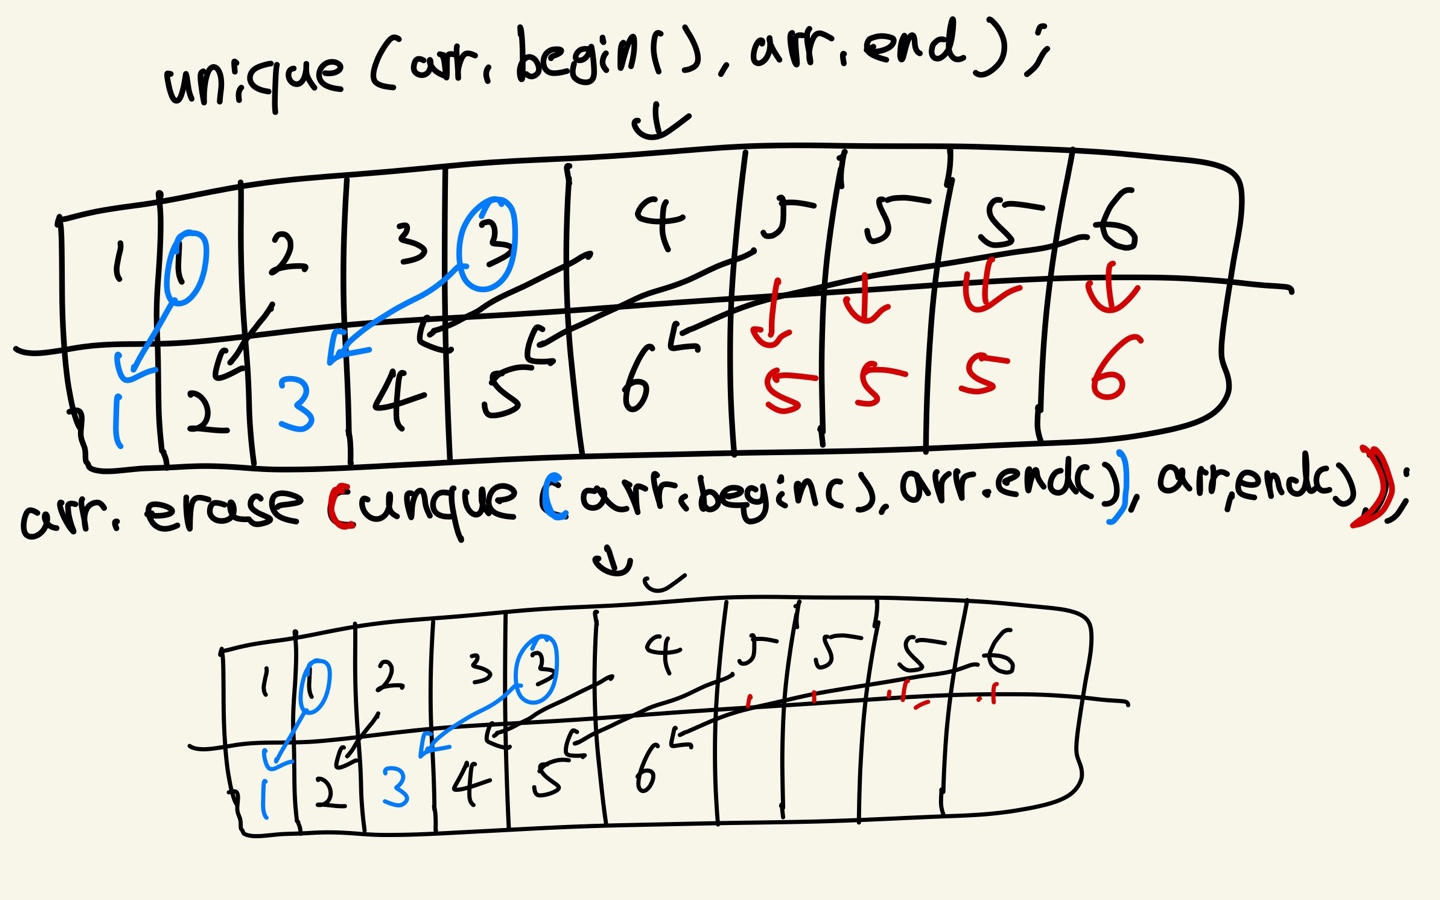 unique (arr. begin(), arr. end);
1 1 2 3 3 4 5 5 5 6
1 2 3 4 5 6 5 5 5 6
arr. erase (unque (arr.begin(), arr.end()), arr,end());
1 1 2 3 3 4 5 5 5 6
1 2 3 4 5 6